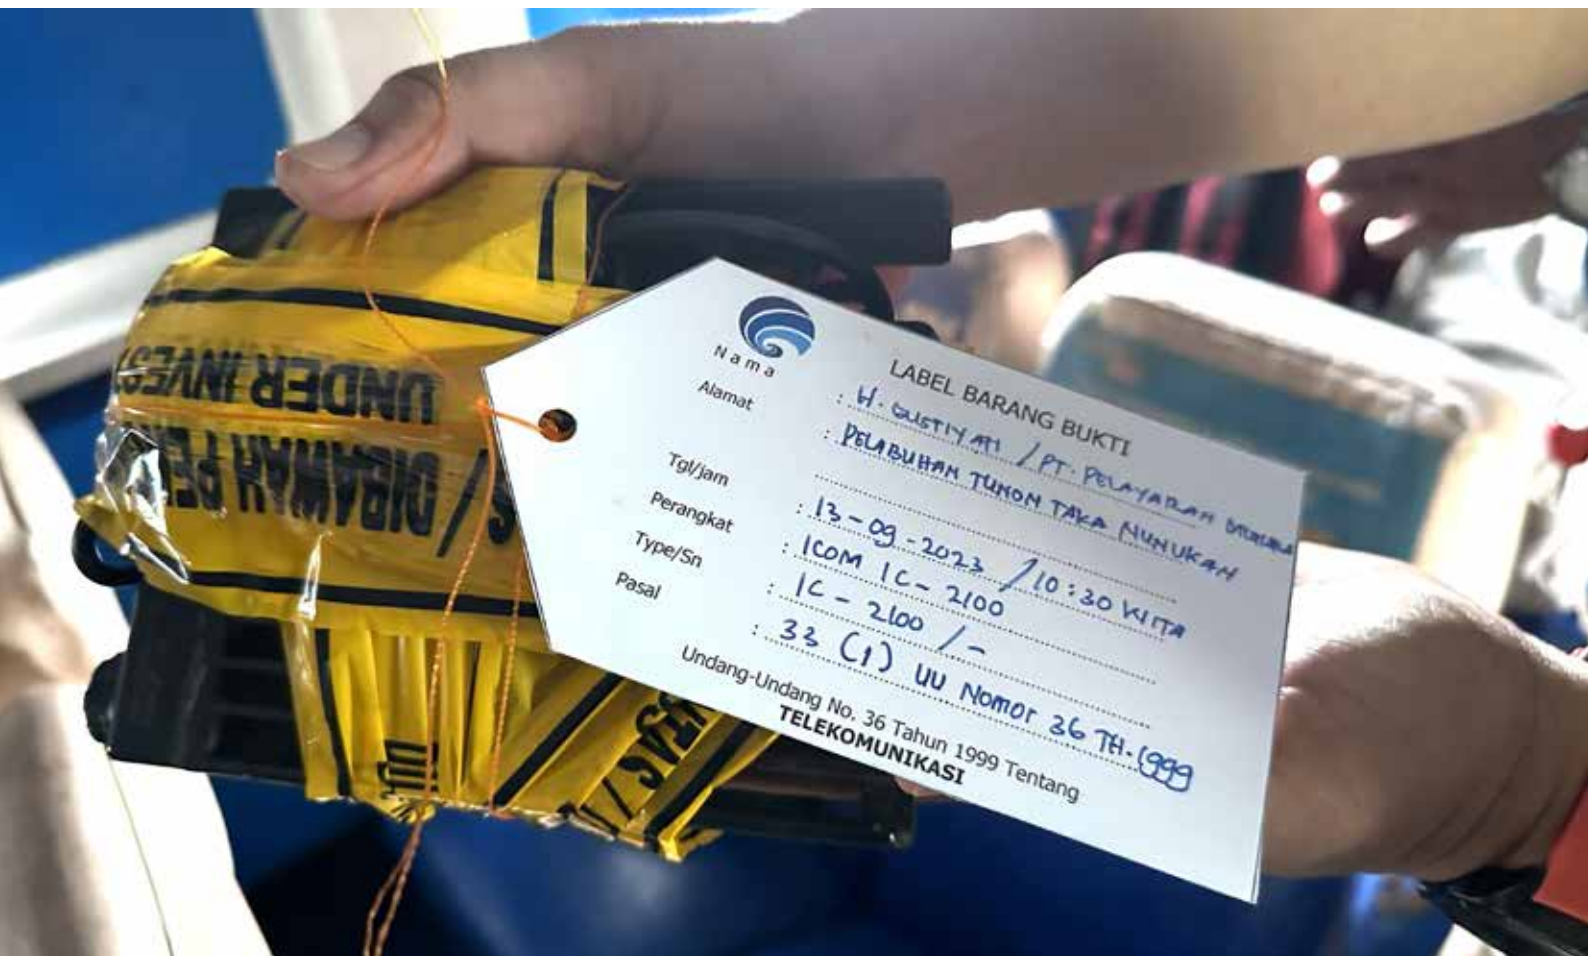 LABEL BARANG BUKTI
Nama : H. GUSTIYATI / PT. PELAYARAN
Alamat : PELABUHAN TUNON TAKA NUNUKAN
Tgl/jam : 13-09-2023 / 10:30 WITA
Perangkat : ICOM IC-2100
Type/Sn : IC-2100 / -
Pasal : 33 (1) UU NOMOR 36 TH. 1999
Undang-Undang No. 36 Tahun 1999 Tentang
TELEKOMUNIKASI
/ DIBAWAH
UNDER